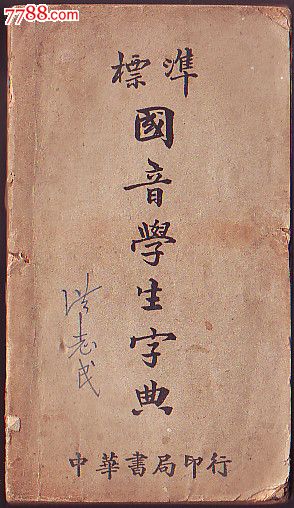 7788.com
標準
國音學生字典
洪志民
中華書局印行